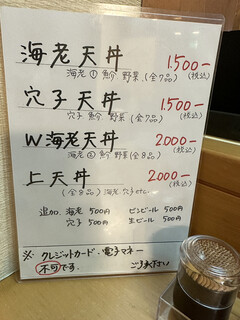 海老天丼 1.500-
海老① 魚介 野菜 (全7品) (税込)
穴子天丼 1.500-
穴子 魚介 野菜 (全7品) (税込)
W海老天丼 2000-
海老② 魚介 野菜 (全8品) (税込)
上天丼 2000-
(全8品) 海老.穴子 (税込)
追加 海老 500円 ビンビール 500円
穴子 500円 生ビール 500円
※ クレジットカード.電子マネー
不可です。 ご了承下さい